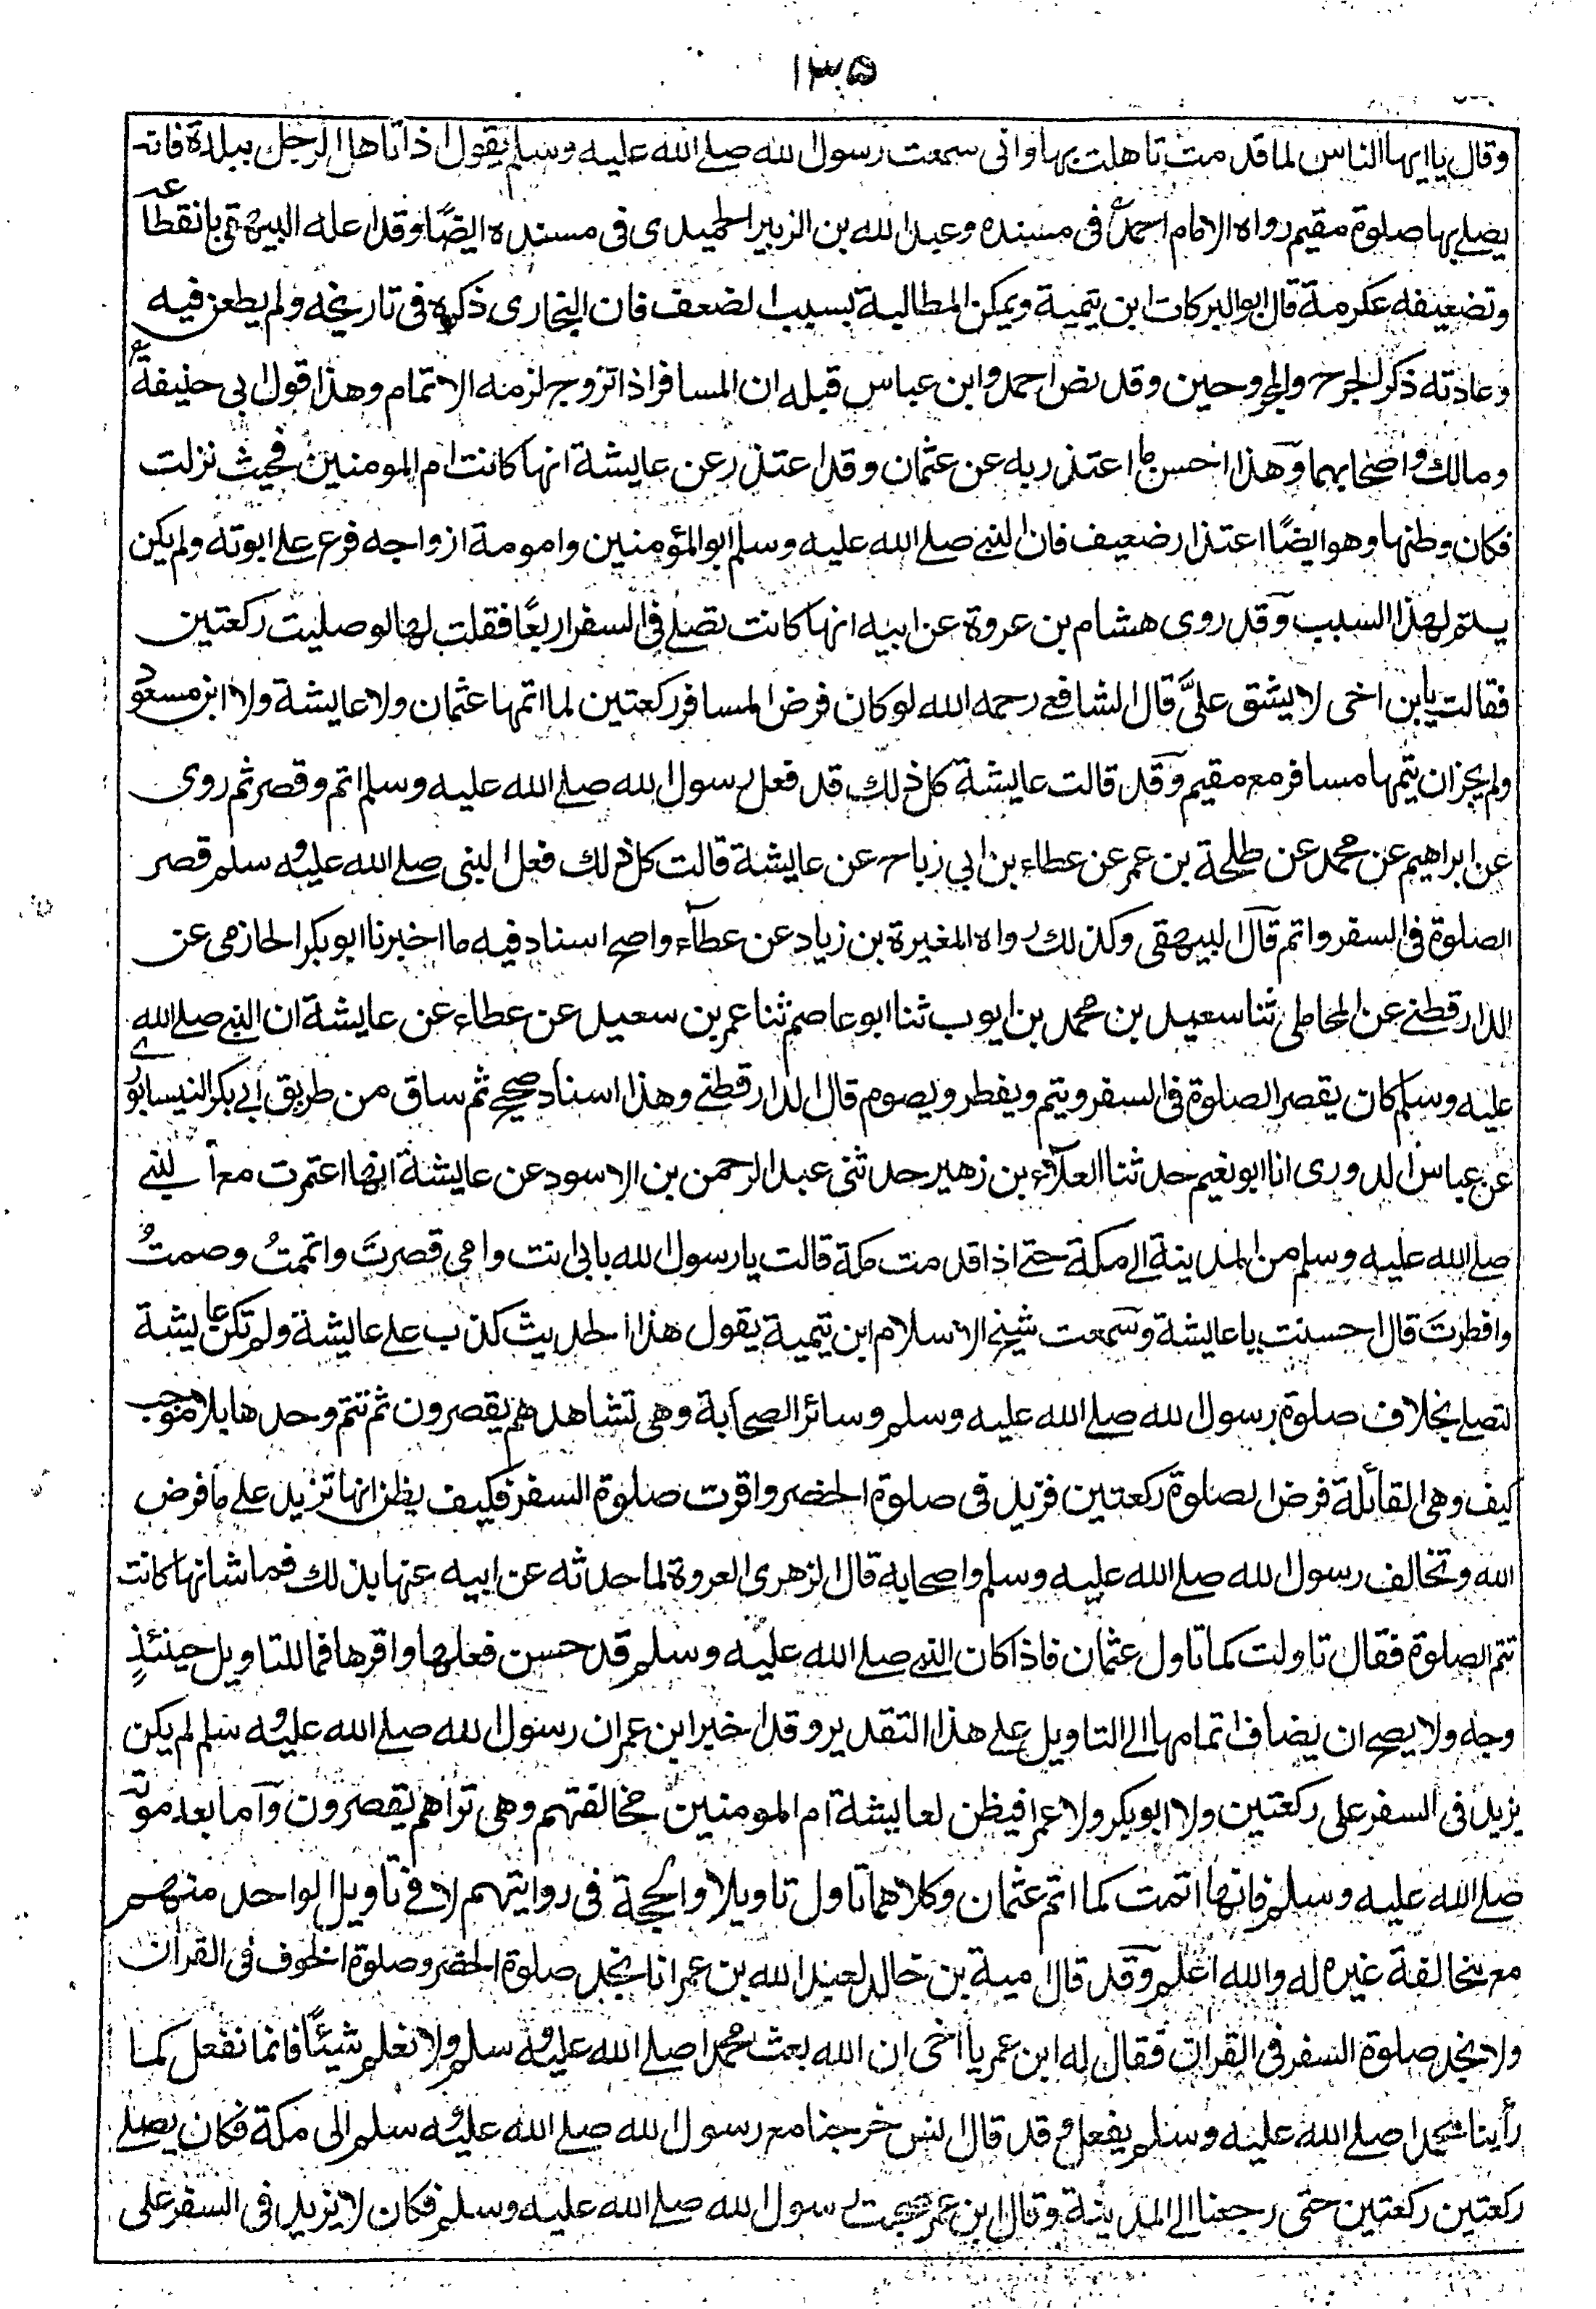 ١٣٥
وقال يا ايها الناس لما قدمت تاهلت بها وانى سمعت رسول الله صلے الله عليه وسلم يقول اذا تاهل الرجل ببلدة فانه
يصلے بها صلوة مقيم رواه الامام احمد فى مسنده وعبد الله بن الزبير الحميدى فى مسنده ايضًا وقد اعله البيهقى بانقطاعه
وتضعيفه عكرمة قال ابو البركات ابن تيمية ويمكن المطالبة بسبب الضعف فان البخارى ذكره فى تاريخه ولم يطعن فيه
وعادته ذكر الجرح والمجروحين وقد نص احمد وابن عباس قبله ان المسافر اذا تزوج لزمه الاتمام وهذا قول ابى حنيفة
ومالك واصحابهما وهذا احسن ما اعتذر به عن عثمان وقد اعتذر عن عايشة انها كانت ام المومنين فحيث نزلت
فكان وطنها وهو ايضًا اعتذار ضعيف فان النبے صلے الله عليه وسلم ابو المؤمنين وامومة ازواجه فرع علے ابوته ولم يكن
يتم لهذا السبب وقد روى هشام بن عروة عن ابيه انها كانت تصلے فى السفر اربعًا فقلت لها لو صليت ركعتين
فقالت يا بن اخى لا يشق علىَّ قال الشافعے رحمه الله لو كان فرض المسافر ركعتين لما اتمها عثمان ولا عايشة ولا ابن مسعود
ولم يجز ان يتمها مسافر مع مقيم وقد قالت عايشة كل ذلك قد فعل رسول الله صلے الله عليه وسلم اتم وقصر ثم روى
عن ابراهيم عن محمد عن طلحة بن عمر عن عطاء بن ابى رباح عن عايشة قالت كل ذلك فعل النبى صلے الله عليه وسلم قصر
الصلوة فى السفر واتم قال البيهقى وكذلك رواه المغيرة بن زياد عن عطآء واصح اسناد فيه ما اخبرنا ابو بكر الحازمى عن
الدارقطنے عن المحاملى ثنا سعيد بن محمد بن ايوب ثنا ابو عاصم ثنا عمر بن سعيد عن عطاء عن عايشة ان النبے صلے الله
عليه وسلم كان يقصر الصلوة فى السفر ويتم ويفطر ويصوم قال الدارقطنے وهذا اسناد صحيح ثم ساق من طريق ابى بكر النيسابورے
عن عباس الدورى انا ابو نعيم حدثنا العلآء بن زهير حدثنى عبد الرحمن بن الاسود عن عايشة انها اعتمرت مع النبے
صلے الله عليه وسلم من المدينة الے مكة حتے اذا قدمت مكة قالت يا رسول الله بابى انت وامى قصرتَ واتممتُ وصمتُ
وافطرتَ قال احسنت يا عايشة وسمعت شيخ الاسلام ابن تيمية يقول هذا الحديث كذب علے عايشة ولم تكن عايشة
لتصلے بخلاف صلوة رسول الله صلے الله عليه وسلم وسائر الصحابة وهى تشاهدهم يقصرون ثم تتم وحدها بلا موجب
كيف وهى القائلة فرض الصلوة ركعتين فزيد فى صلوة الحضر واقرت صلوة السفر فكيف يظن انها تزيد علے ما فرض
الله وتخالف رسول الله صلے الله عليه وسلم واصحابه قال الزهرى لعروة لما حدثه عن ابيه عنها بذلك فما شانها كانت
تتم الصلوة فقال تاولت كما تاول عثمان فاذا كان النبے صلے الله عليه وسلم قد حسن فعلها واقرها فما للتاويل حينئذٍ
وجه ولا يصح ان يضاف اتمامها الے التاويل علے هذا التقدير وقد اخبر ابن عمر ان رسول الله صلے الله عليه وسلم لم يكن
يزيد فى السفر على ركعتين ولا ابو بكر ولا عمر افيظن لعايشة ام المومنين مخالفتهم وهى تراهم يقصرون وآما بعد موته
صلے الله عليه وسلم فانها اتمت كما اتم عثمان وكلاهما تاول تاويلا والحجة فى روايتهم لا فى تاويل الواحد منهم
مع مخالفة غيره له والله اعلم وقد قال امية بن خالد لعبد الله بن عمر انا نجد صلوة الحضر وصلوة الخوف فى القرآن
ولا نجد صلوة السفر فى القرآن فقال له ابن عمر يا اخى ان الله بعث محمدا صلے الله عليه وسلم ولا نعلم شيئًا فانما نفعل كما
رأينا محمدا صلے الله عليه وسلم يفعل وقد قال انس خرجنا مع رسول الله صلے الله عليه وسلم الى مكة فكان يصلے
ركعتين ركعتين حتى رجعنا الے المدينة وقال ابن عمر صحبت رسول الله صلے الله عليه وسلم فكان لا يزيد فى السفر على